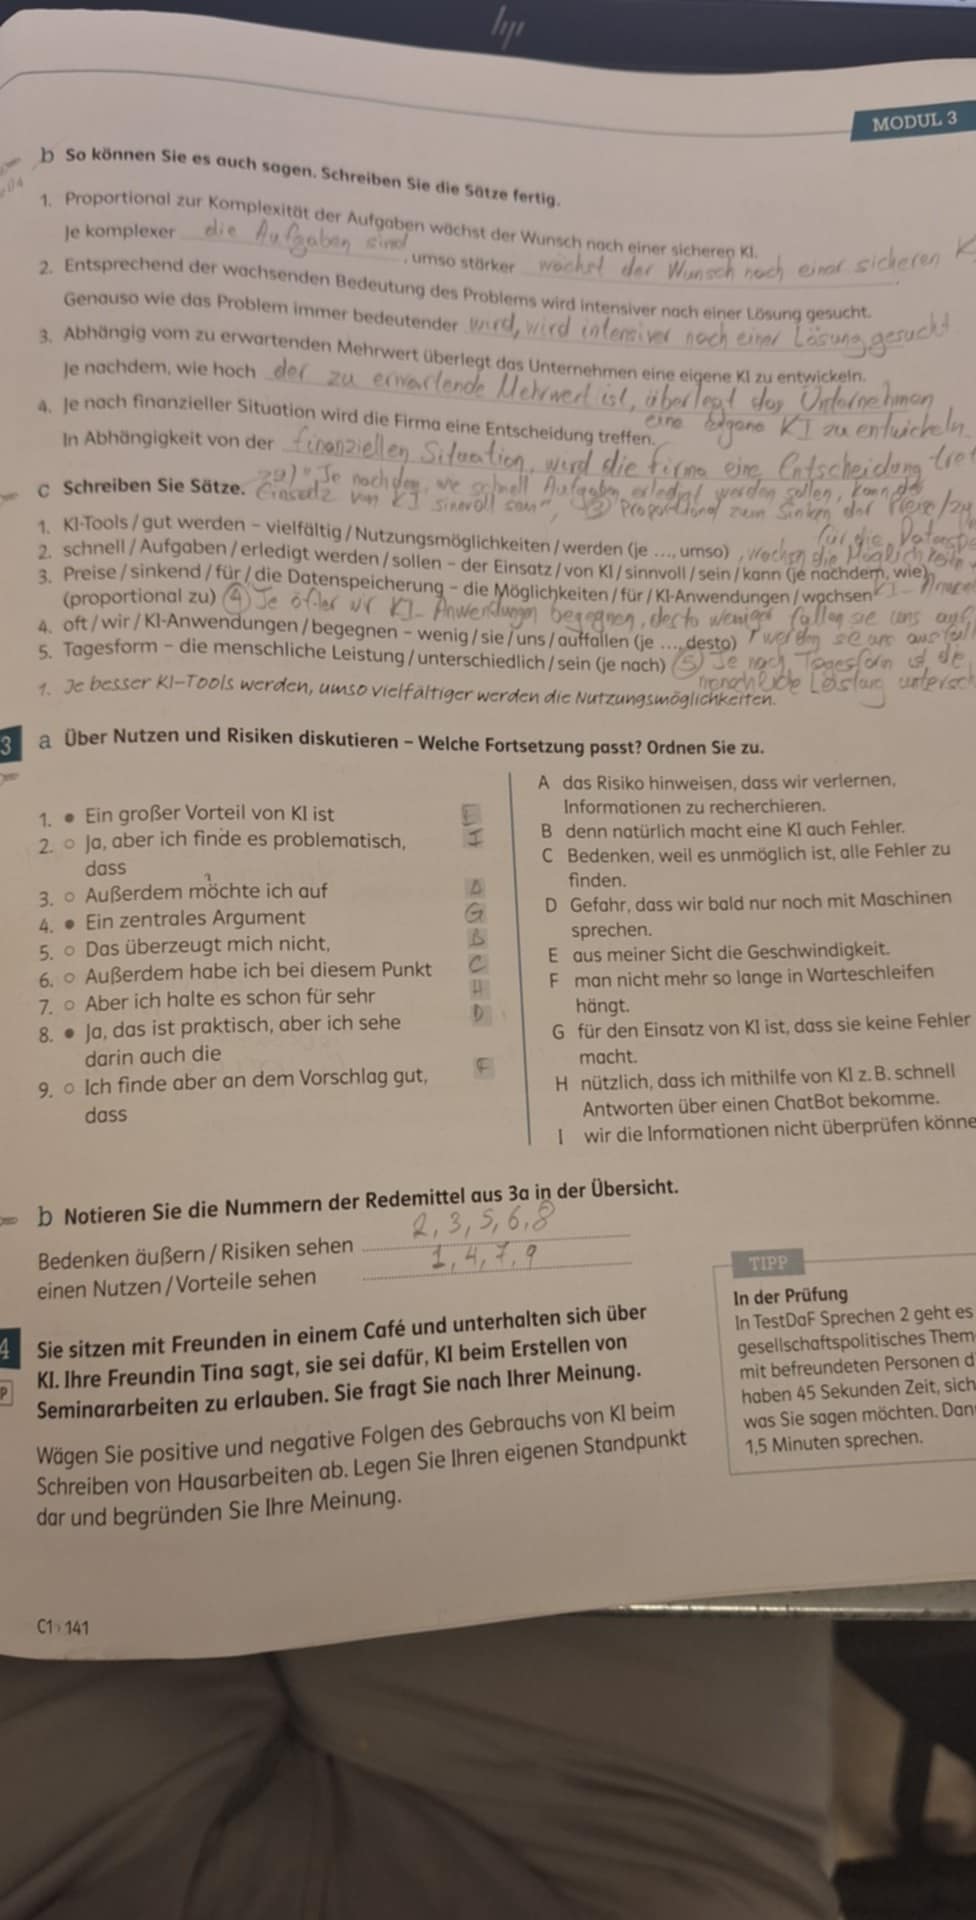 MODUL 3
b So können Sie es auch sagen. Schreiben Sie die Sätze fertig.
1. Proportional zur Komplexität der Aufgaben wächst der Wunsch nach einer sicheren KI.
Je komplexer die Aufgaben sind, umso stärker wächst der Wunsch nach einer sicheren K
2. Entsprechend der wachsenden Bedeutung des Problems wird intensiver nach einer Lösung gesucht.
Genauso wie das Problem immer bedeutender wird, wird intensiver nach einer Lösung gesucht
3. Abhängig vom zu erwartenden Mehrwert überlegt das Unternehmen eine eigene KI zu entwickeln.
Je nachdem, wie hoch der zu erwartende Mehrwert ist, überlegt das Unternehmen
eine eigene KI zu entwickeln.
4. Je nach finanzieller Situation wird die Firma eine Entscheidung treffen.
In Abhängigkeit von der finanziellen Situation, wird die Firma eine Entscheidung tref
Je nachdem, wie schnell Aufgaben erledigt werden sollen, kann der
c Schreiben Sie Sätze. Einsatz von KI sinnvoll sein", ③ Proportional zum Sinken der Preise
für die Datenspe
1. KI-Tools / gut werden – vielfältig / Nutzungsmöglichkeiten / werden (je ..., umso), wachsen die Möglichkeiten
2. schnell / Aufgaben / erledigt werden / sollen – der Einsatz / von KI / sinnvoll / sein / kann (je nachdem, wie)
3. Preise / sinkend / für / die Datenspeicherung – die Möglichkeiten / für / KI-Anwendungen / wachsen
(proportional zu) ④ Je öfter wir KI-Anwendungen begegnen, desto weniger fallen sie uns auf
4. oft / wir / KI-Anwendungen / begegnen – wenig / sie / uns / auffallen (je ..., desto) werden sie uns
5. Tagesform – die menschliche Leistung / unterschiedlich / sein (je nach) ⑤ Je nach Tagesform ist die
menschliche Leistung untersch
1. Je besser KI-Tools werden, umso vielfältiger werden die Nutzungsmöglichkeiten.
3 a Über Nutzen und Risiken diskutieren – Welche Fortsetzung passt? Ordnen Sie zu.
1. ● Ein großer Vorteil von KI ist E
2. ○ Ja, aber ich finde es problematisch, I
dass
3. ○ Außerdem möchte ich auf A
4. ● Ein zentrales Argument G
5. ○ Das überzeugt mich nicht, B
6. ○ Außerdem habe ich bei diesem Punkt C
7. ○ Aber ich halte es schon für sehr H
8. ● Ja, das ist praktisch, aber ich sehe D
darin auch die
9. ○ Ich finde aber an dem Vorschlag gut, F
dass
A das Risiko hinweisen, dass wir verlernen,
Informationen zu recherchieren.
B denn natürlich macht eine KI auch Fehler.
C Bedenken, weil es unmöglich ist, alle Fehler zu
finden.
D Gefahr, dass wir bald nur noch mit Maschinen
sprechen.
E aus meiner Sicht die Geschwindigkeit.
F man nicht mehr so lange in Warteschleifen
hängt.
G für den Einsatz von KI ist, dass sie keine Fehler
macht.
H nützlich, dass ich mithilfe von KI z. B. schnell
Antworten über einen ChatBot bekomme.
I wir die Informationen nicht überprüfen könne
b Notieren Sie die Nummern der Redemittel aus 3a in der Übersicht.
Bedenken äußern / Risiken sehen 2, 3, 5, 6, 8
einen Nutzen / Vorteile sehen 1, 4, 7, 9
4 Sie sitzen mit Freunden in einem Café und unterhalten sich über
P KI. Ihre Freundin Tina sagt, sie sei dafür, KI beim Erstellen von
Seminararbeiten zu erlauben. Sie fragt Sie nach Ihrer Meinung.
Wägen Sie positive und negative Folgen des Gebrauchs von KI beim
Schreiben von Hausarbeiten ab. Legen Sie Ihren eigenen Standpunkt
dar und begründen Sie Ihre Meinung.
TIPP
In der Prüfung
In TestDaF Sprechen 2 geht es
gesellschaftspolitisches Them
mit befreundeten Personen d
haben 45 Sekunden Zeit, sich
was Sie sagen möchten. Dan
1,5 Minuten sprechen.
C1 › 141